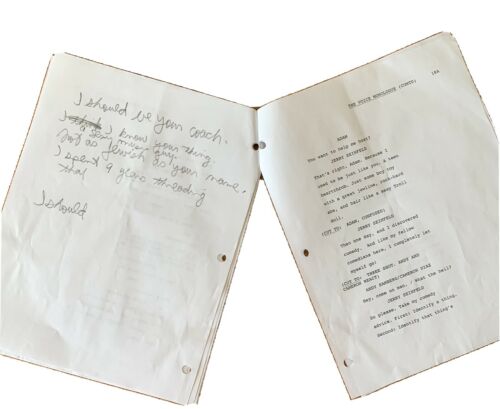 I should be your coach.
I I know your thing.
guy
Just as Jewish as your name.
I spent 9 years threading
that
I should
THE VOICE MONOLOGUE (CONTD) 16A
ADAM
You want to help me host?
JERRY SEINFELD
That's right, Adam. Because I
used to be just like you, a teen
heartthrob. Just some boy toy
with a great jawline, rock-hard
abs, and hair like a sexy troll
doll.
(CUT TO: ADAM, CONFUSED)
JERRY SEINFELD
Then one day, and I discovered
comedy. And like my fellow
comedians here, I completely let
myself go!
(CUT TO: THREE SHOT. ANDY AND
CAMERON REACT)
ANDY SAMBERG/CAMERON DIAZ
Hey, come on man. / What the hell?
JERRY SEINFELD
So please. Take my comedy
advice. First: Identify a thing.
Second: Identify that thing's